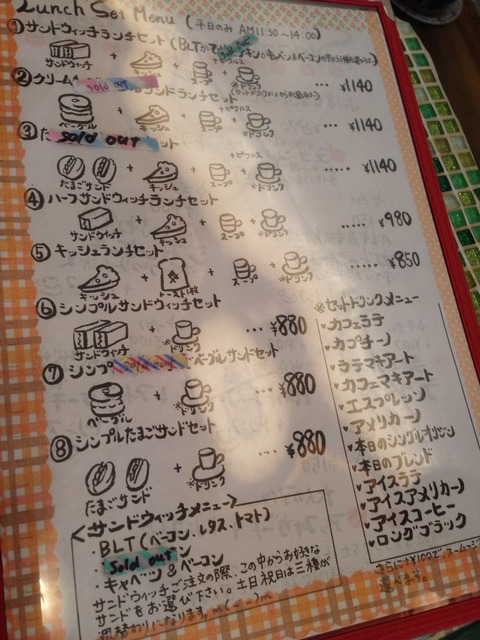 Lunch Set Menu (平日のみ AM11:30~14:00)
①サンドウィッチランチセット (BLTか
サンドウィッチ + キッシュ + スープ + ※ドリンク ... ¥1140
②クリーム sold out サンドランチセット
ベーグル + キッシュ + スープ + ※ドリンク ... ¥1140
+ピクルス
③た sold out
たまごサンド + キッシュ + スープ + ※ドリンク ... ¥1140
+ピクルス
④ハーフサンドウィッチランチセット
サンドウィッチ + キッシュ + スープ + ※ドリンク ..... ¥980
⑤キッシュランチセット
キッシュ + トースト1枚 + スープ + ※ドリンク ..... ¥850
⑥シンプルサンドウィッチセット
サンドウィッチ + ※ドリンク ... ¥880
⑦シンプ sold out ベーグルサンドセット
ベーグル + ※ドリンク ... ¥880
⑧シンプルたまごサンドセット
たまごサンド + ※ドリンク ... ¥880
<サンドウィッチメニュー>
・BLT(ベーコン、レタス、トマト)
・Sold out ン
・キャベツ&ベーコン
サンドウィッチご注文の際、この中からお好きな
サンドをお選び下さい。土日祝日は三種が
週替わりになります。m(_ _)m
※セットドリンクメニュー
♥カフェラテ
♥カプチーノ
♥ラテマキアート
♥カフェマキアート
♥エスプレッソ
♥アメリカーノ
♥本日のシングルオリジン
♥本日のブレンド
♥アイスラテ
♥アイスアメリカーノ
♥アイスコーヒー
♥ロングブラック
さらに+¥100でスムージー
選べます。